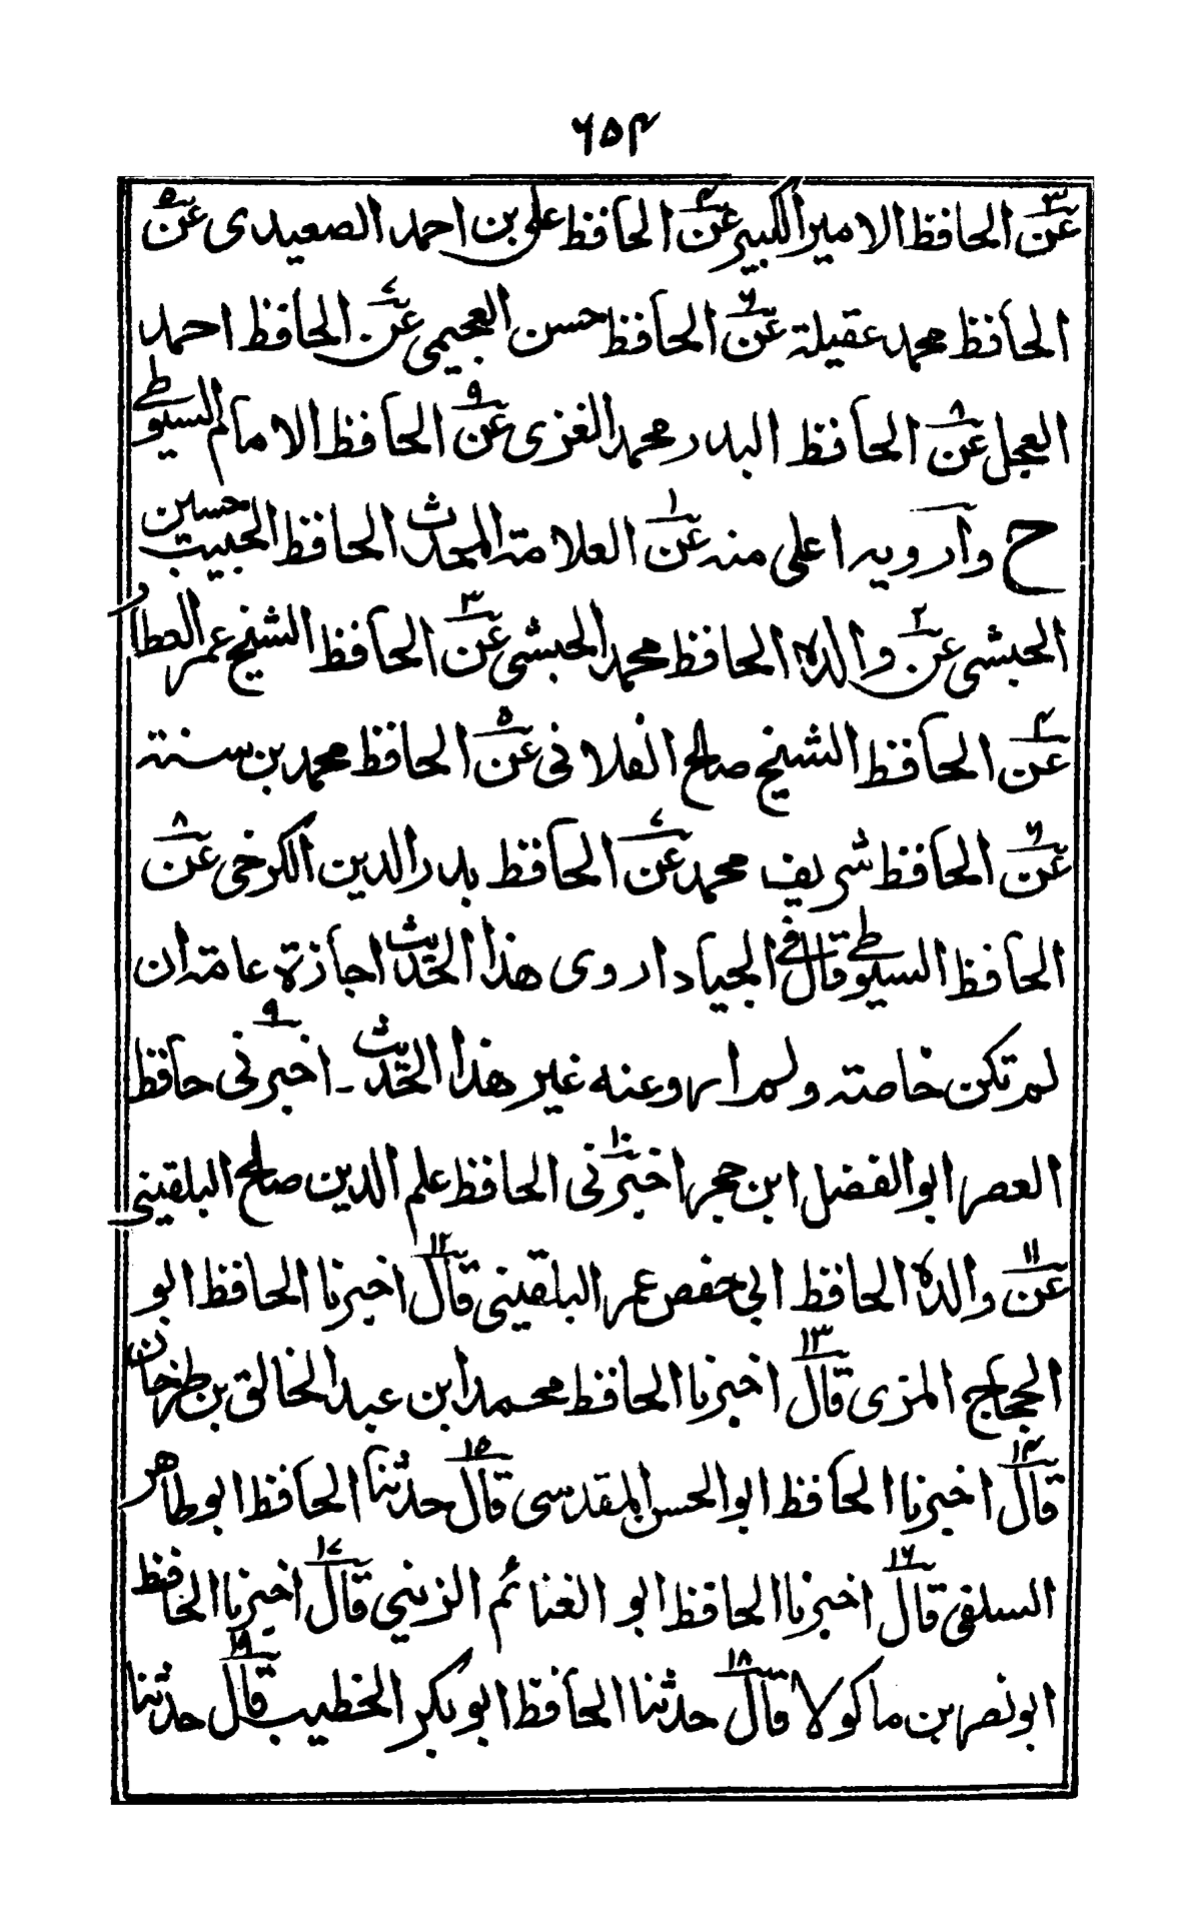 ۶۵۴
عن۳ الحافظ الامير الكبير عن۴ الحافظ على بن احمد الصعيدى عن۵
الحافظ محمد عقيلة عن۶ الحافظ حسن العجيمى عن۷ الحافظ احمد
العجل عن۸ الحافظ البدر محمد الغزى عن۹ الحافظ الامام السيوطى
ح وآرويه اعلى منه عن۱ العلامة المحدث الحافظ الحبيب حسين
الحبشى عن۲ والده الحافظ محمد الحبشى عن۳ الحافظ الشيخ عمر العطار
عن۴ الحافظ الشيخ صالح الفلانى عن۵ الحافظ محمد بن سنته
عن۶ الحافظ شريف محمد عن۷ الحافظ بدر الدين الكرخى عن۸
الحافظ السيوطى قال فى الجياد اروى هذا الحديث اجازة عامة ان
لم تكن خاصة ولم ارو عنه غير هذا الحديث ـ اخبرنى۹ حافظ
العصر ابو الفضل ابن حجر اخبرنى۱۰ الحافظ علم الدين صالح البلقينى
عن۱۱ والده الحافظ ابي حفص عمر البلقينى قال۱۲ اخبرنا الحافظ ابو
الحجاج المزى قال۱۳ اخبرنا الحافظ محمد ابن عبد الخالق بن طرخان
قال۱۴ اخبرنا الحافظ ابو الحسن المقدسى قال۱۵ حدثنا الحافظ ابو طاهر
السلفى قال۱۶ اخبرنا الحافظ ابو الغنائم الزينبي قال۱۷ اخبرنا الحافظ
ابو نصر بن ماكولا قال۱۸ حدثنا الحافظ ابو بكر الخطيب قال۱۹ حدثنا